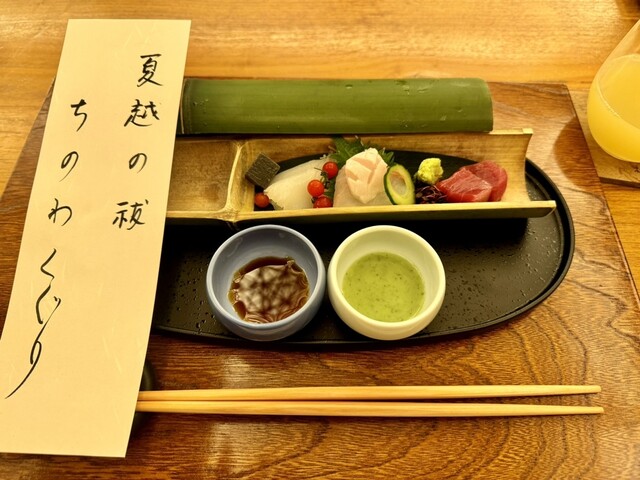 夏越の祓
ちのわくぐり